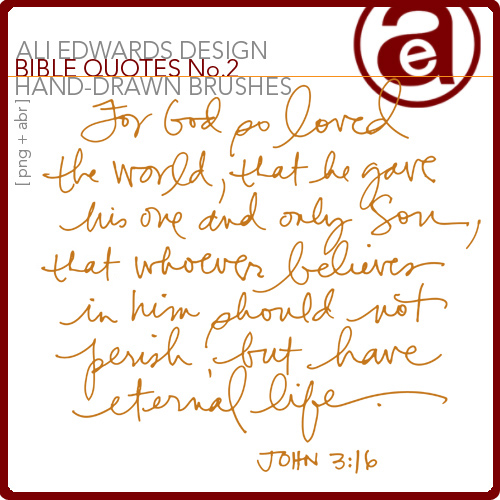 ALI EDWARDS DESIGN
BIBLE QUOTES No.2
HAND-DRAWN BRUSHES
[ png + abr ]
ae
For God so loved
the world, that he gave
his one and only Son,
that whoever believes
in him should not
perish, but have
eternal life.
JOHN 3:16